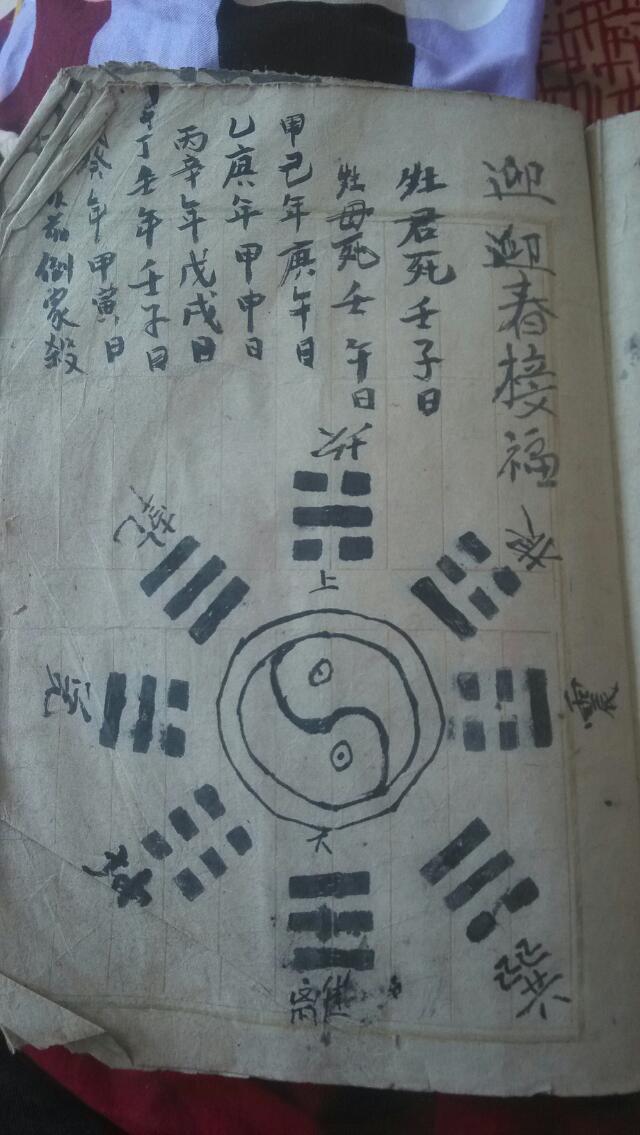 迎迎春接福
灶君死壬子日
灶母死壬午日
甲己年庚午日
乙庚年甲申日
丙辛年戊戌日
丁壬年壬子日
癸年甲寅日
倒家殺
坎
乾
艮
上
兑
震
下
巽
離